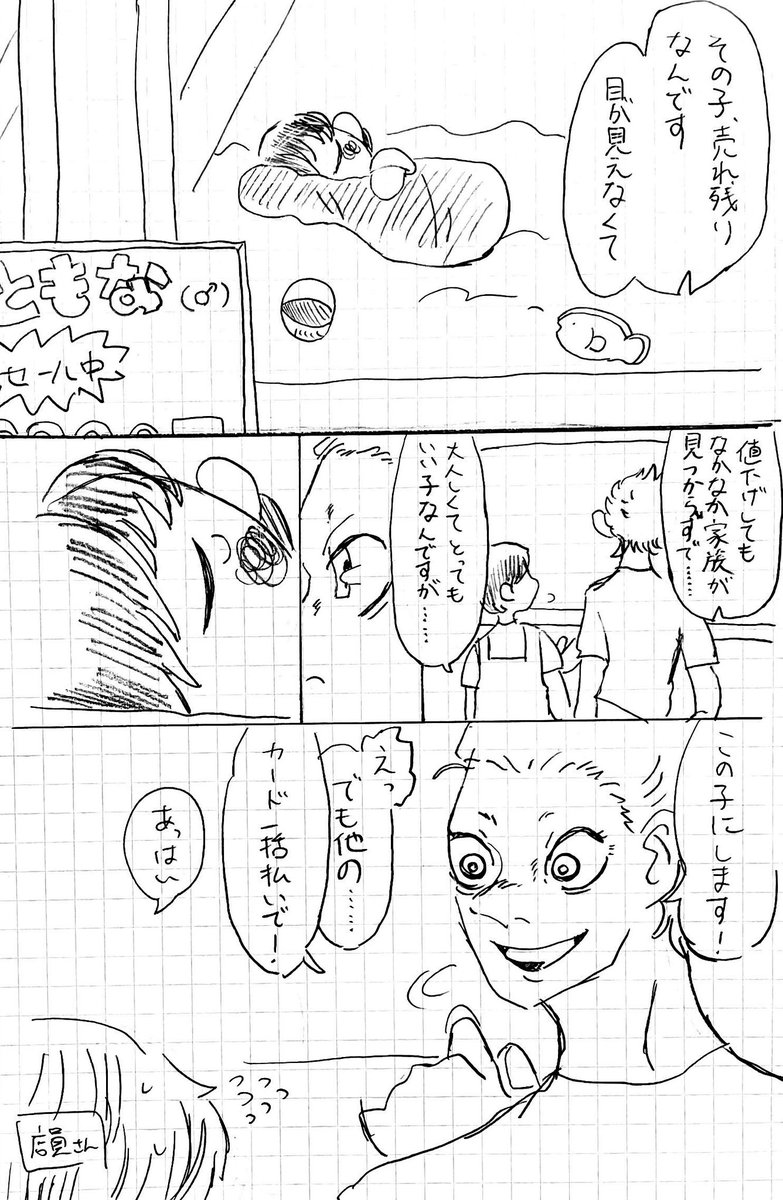 その子、売れ残り
なんです
目が見えなくて
ともな(♂)
セール中
値下げしても
なかなか家族が
見つからずで……
大人しくてとっても
いい子なんですが……
この子にします!
えっ
でも他の……
カード一括払いで!
あっはい
店員さん